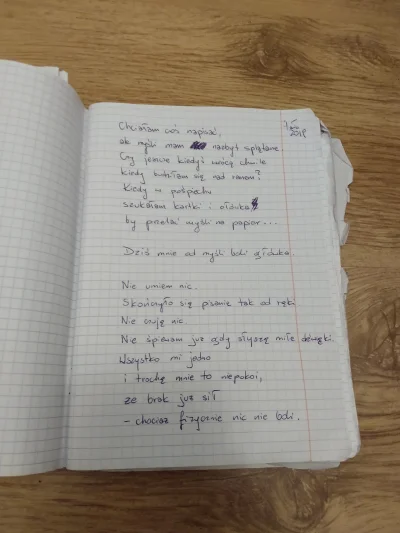 Chciałam coś napisać,
ale myśli mam nazbyt splątane.
Czy jeszcze kiedyś wrócą chwile
kiedy budziłam się nad ranem?
Kiedy w pośpiechu
szukałam kartki i ołówka
by przelać myśli na papier...
Dziś mnie od myśli boli główka.
Nie umiem nic.
Skończyło się pisanie tak od ręki.
Nie czuję nic.
Nie śpiewam już gdy słyszę miłe dźwięki.
Wszystko mi jedno
i trochę mnie to niepokoi,
że brak już sił
- chociaż fizycznie nic nie boli.